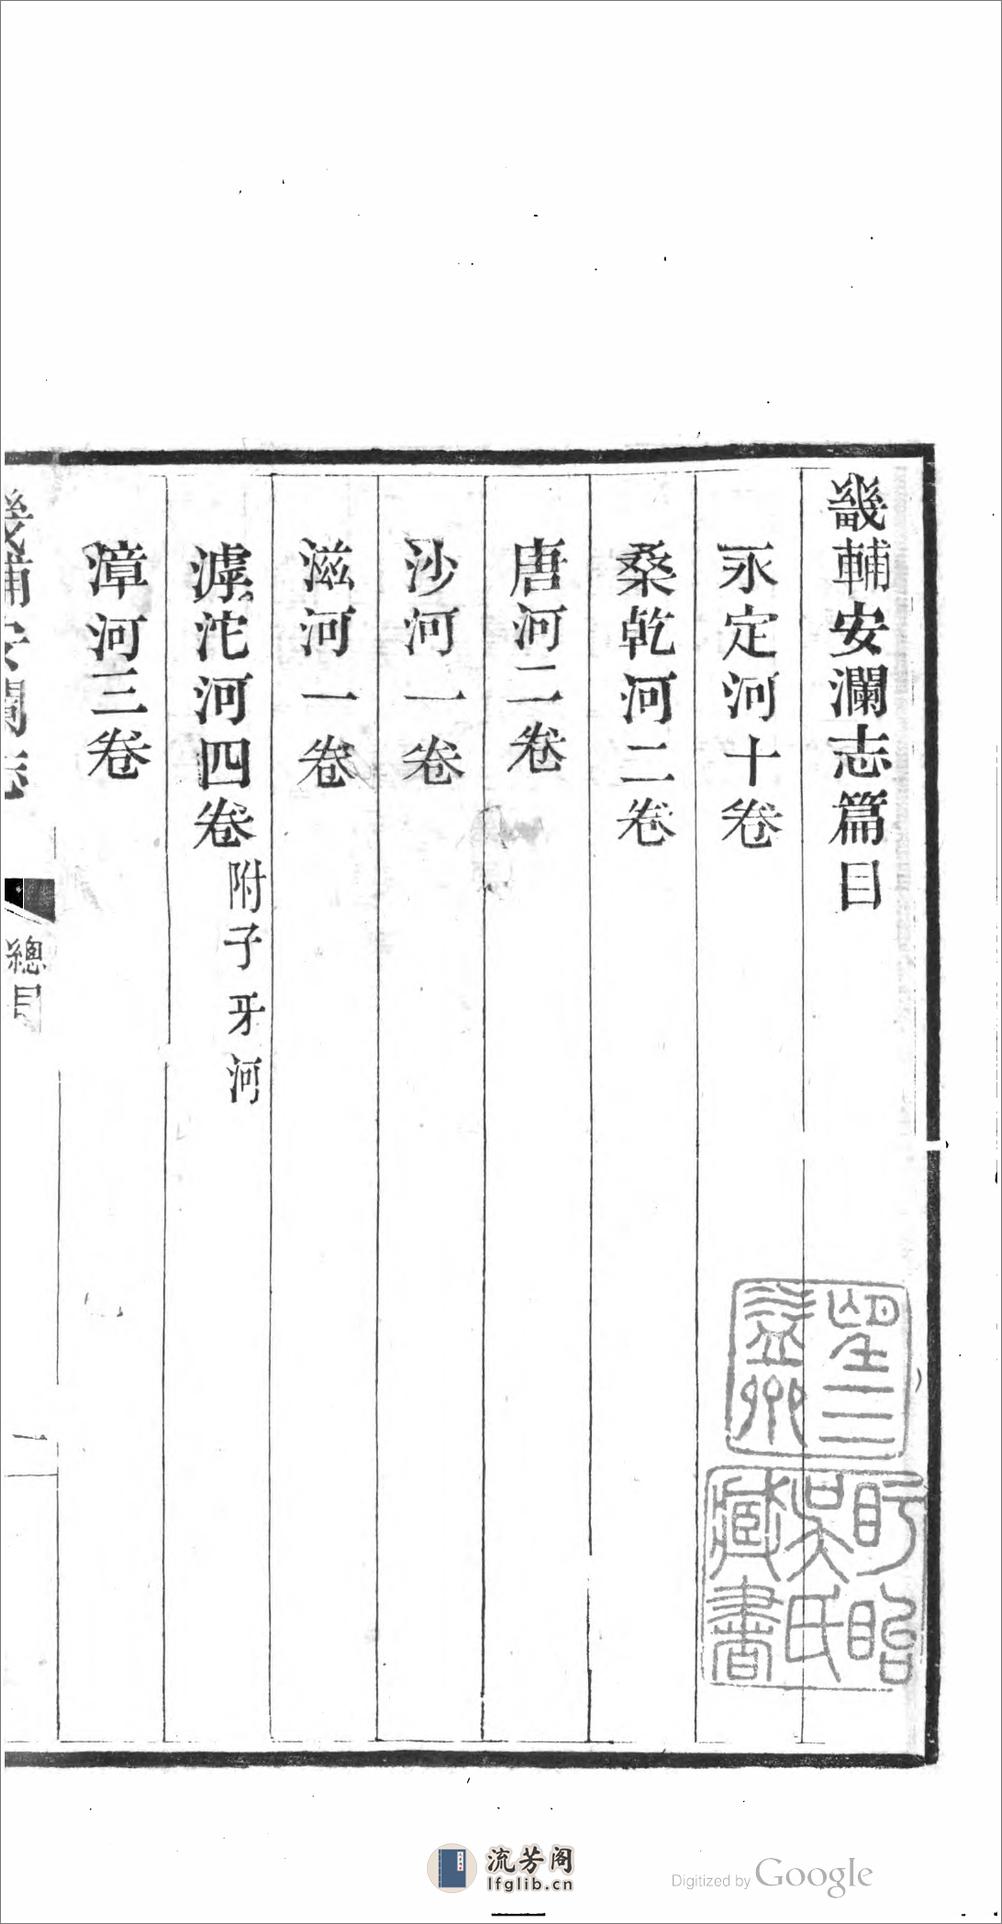 畿輔安瀾志篇目
永定河十卷
桑乾河二卷
唐河二卷
沙河一卷
滋河一卷
滹沱河四卷附子牙河
漳河三卷
畿輔安瀾志
總目
一
望三益齋
盱眙吳氏藏書
流芳阁
lfglib.cn
Digitized by Google